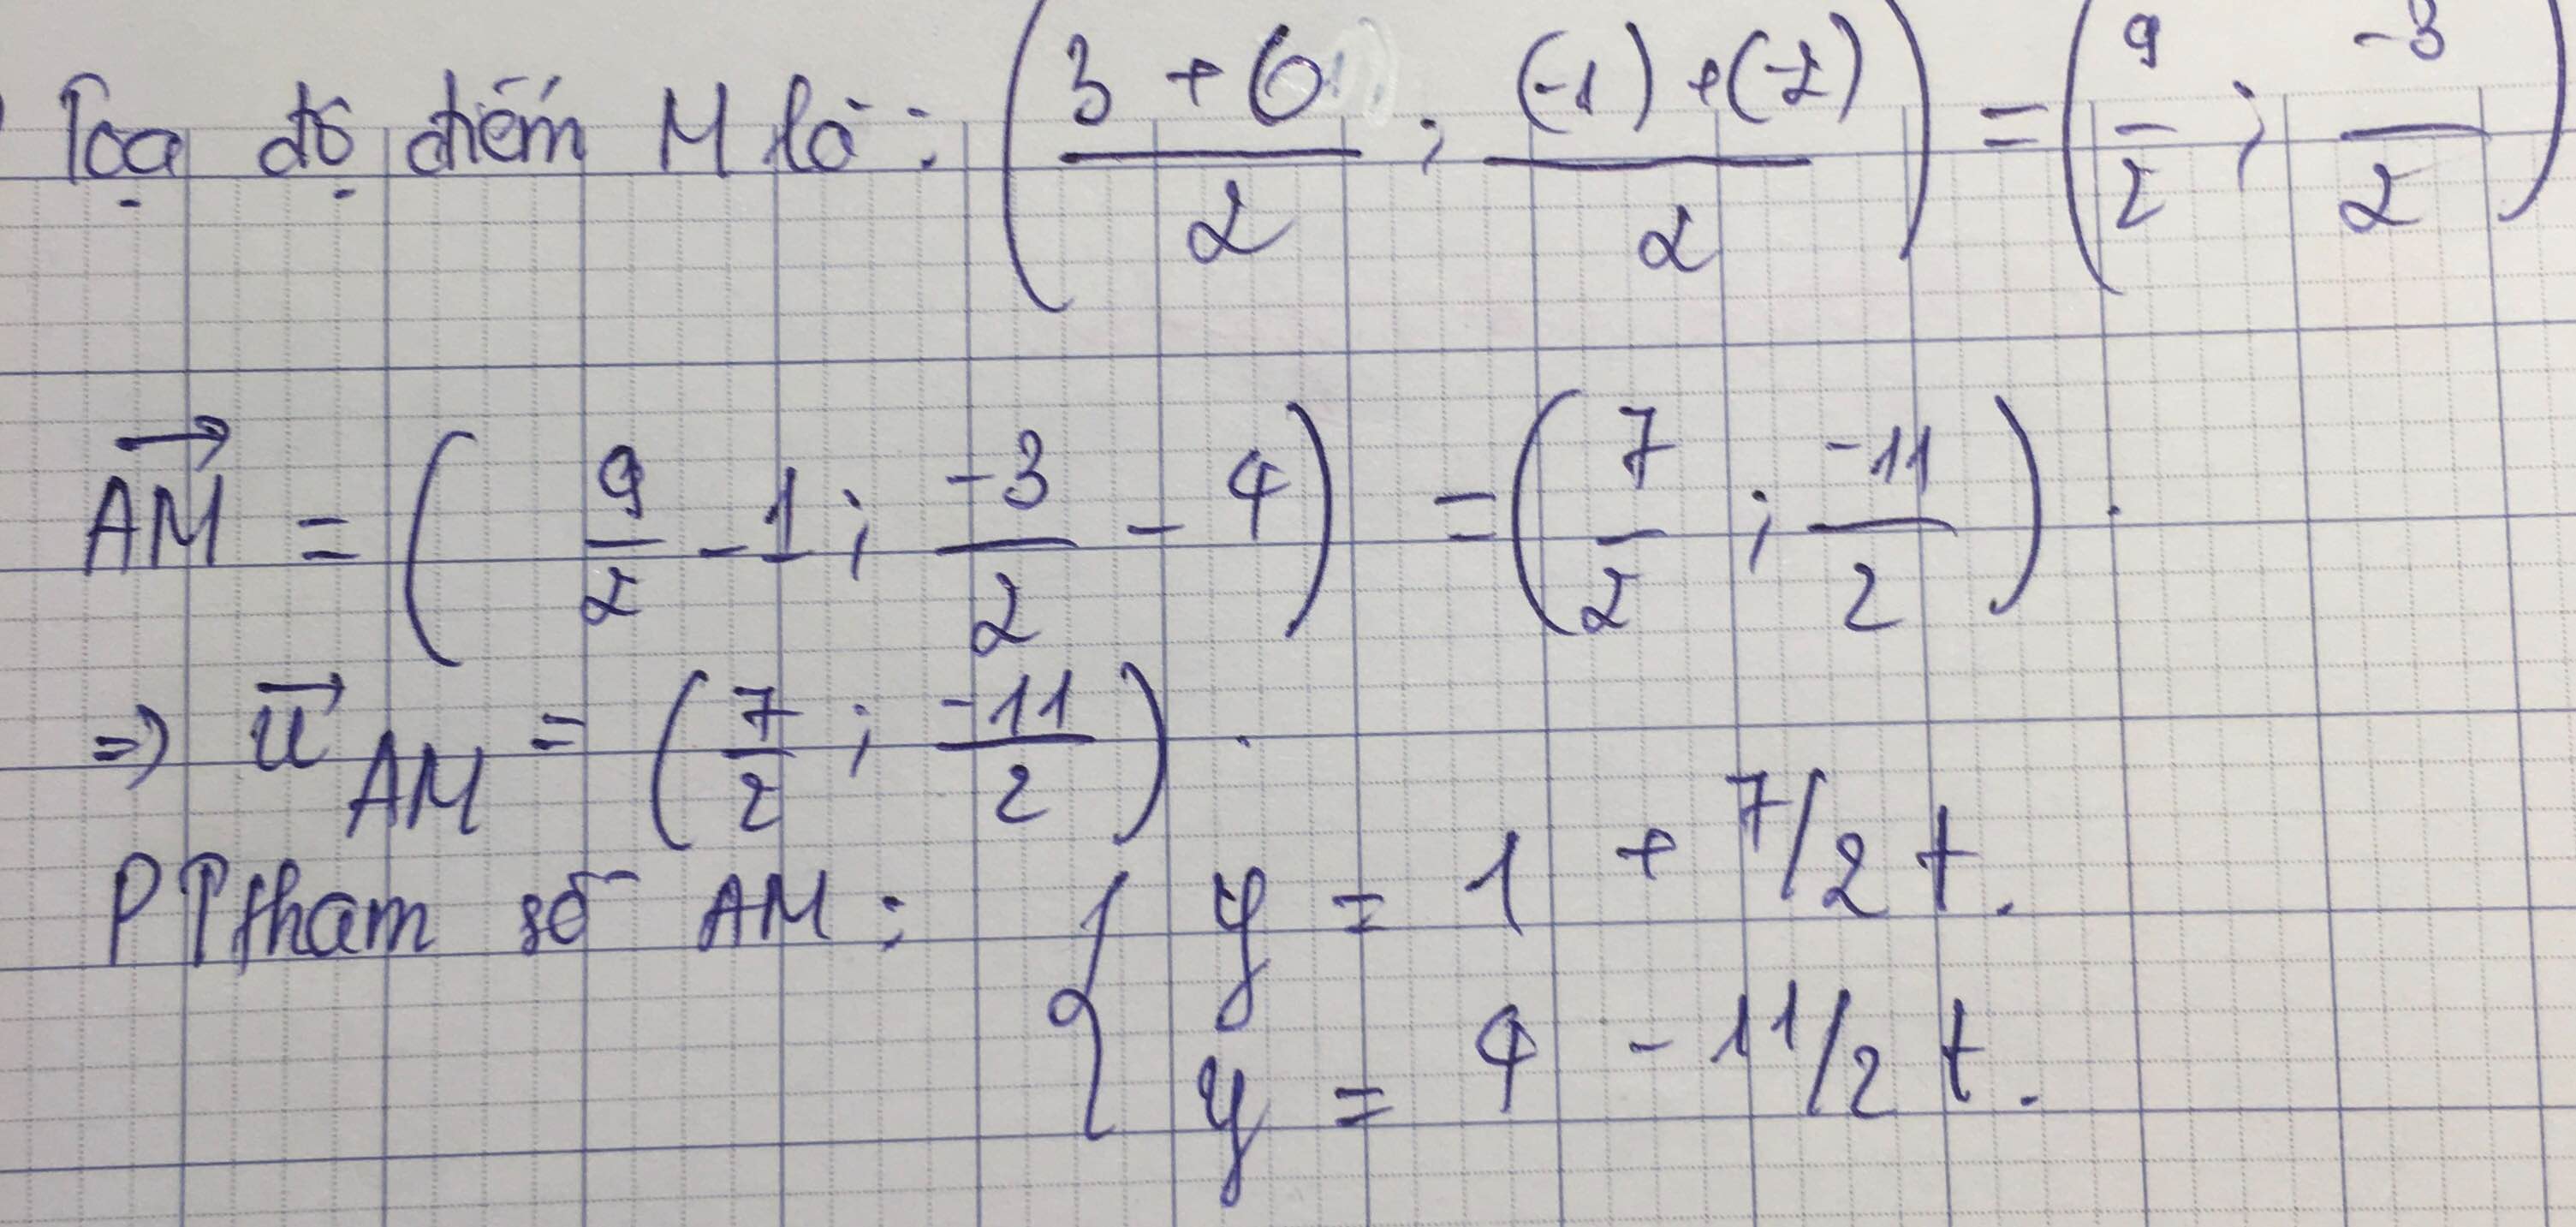 Toạ độ điểm M là: (3 + 6 / 2 ; (-1) + (-2) / 2) = (9/2 ; -3/2)
AM→ = (9/2 - 1 ; -3/2 - 4) = (7/2 ; -11/2).
=) u→ AM = (7/2 ; -11/2).
PT tham số AM: { y = 1 + 7/2 t.
y = 4 - 11/2 t.